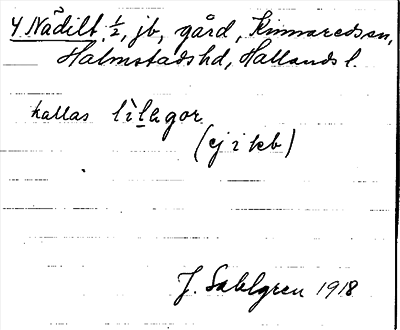 Y Nådilt ½, jb, gård, Kinnareds sn,
Halmstads hd, Hallands l.
kallas lìlagor
(ej i kb)
J. Sahlgren 1918